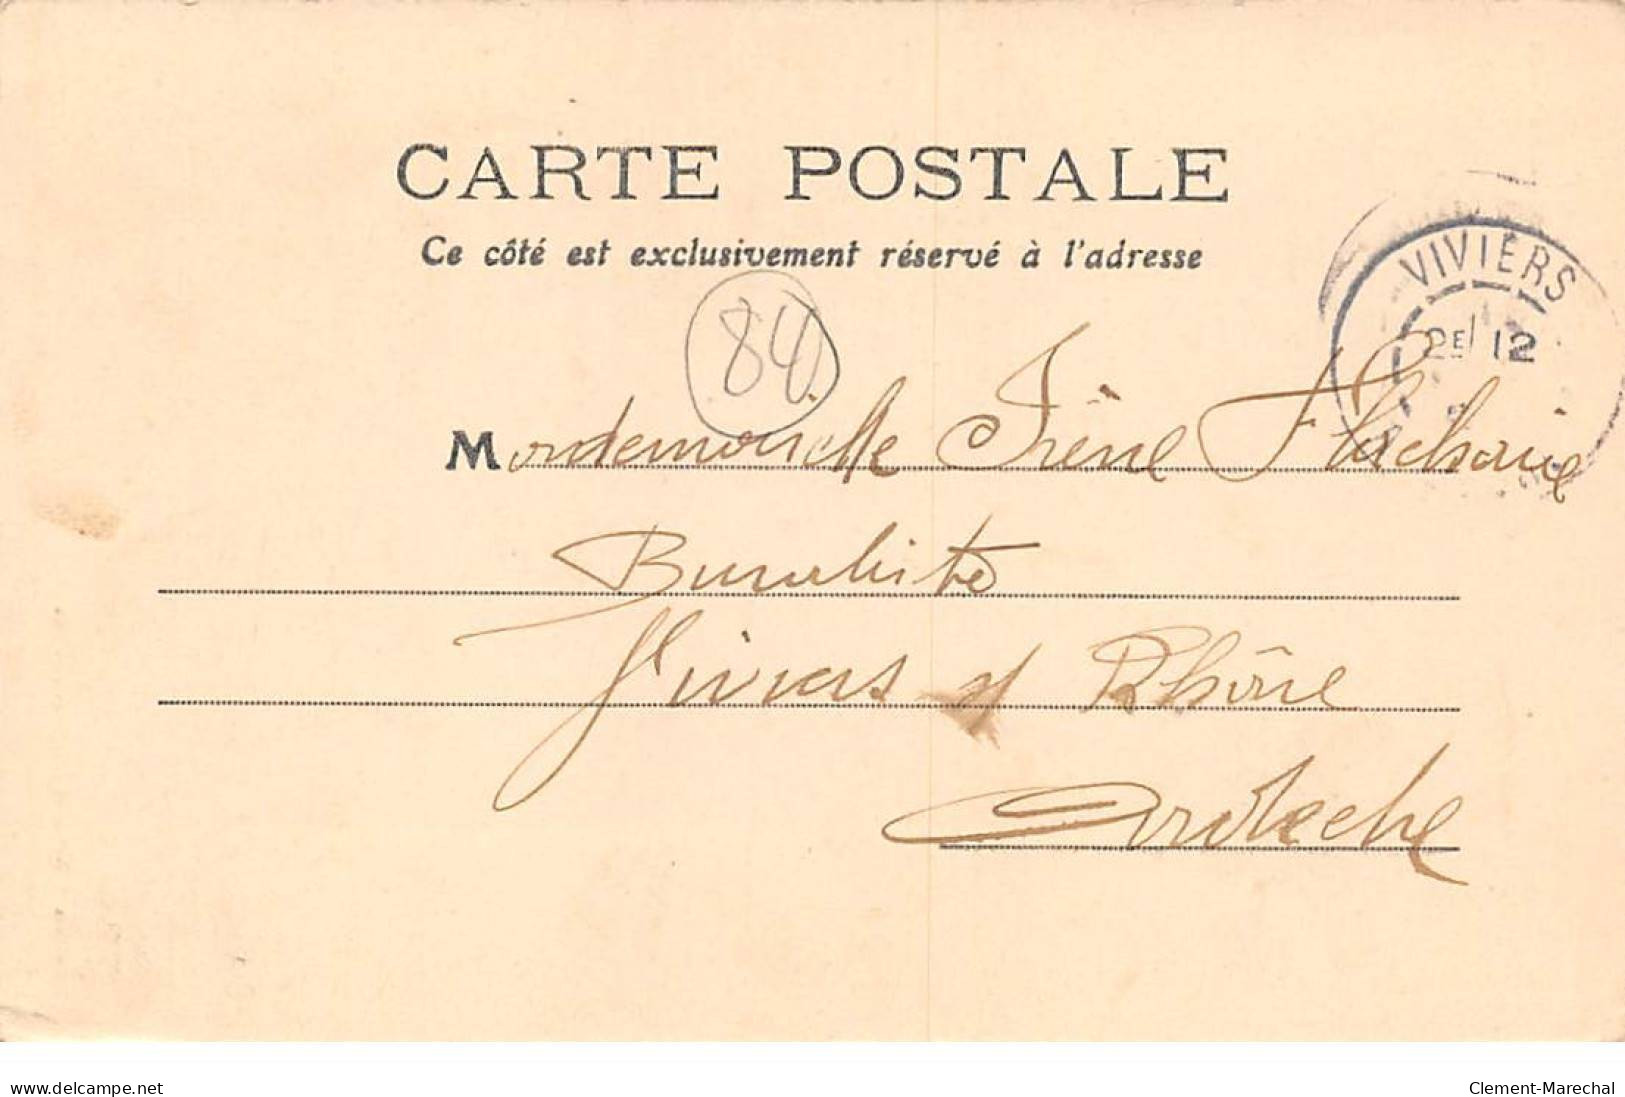 CARTE POSTALE
Ce côté est exclusivement réservé à l'adresse
VIVIERS
2E 12
84
Mademoiselle Irène
Viviers s/ Rhône
Ardèche
www.delcampe.net
Clement-Marechal